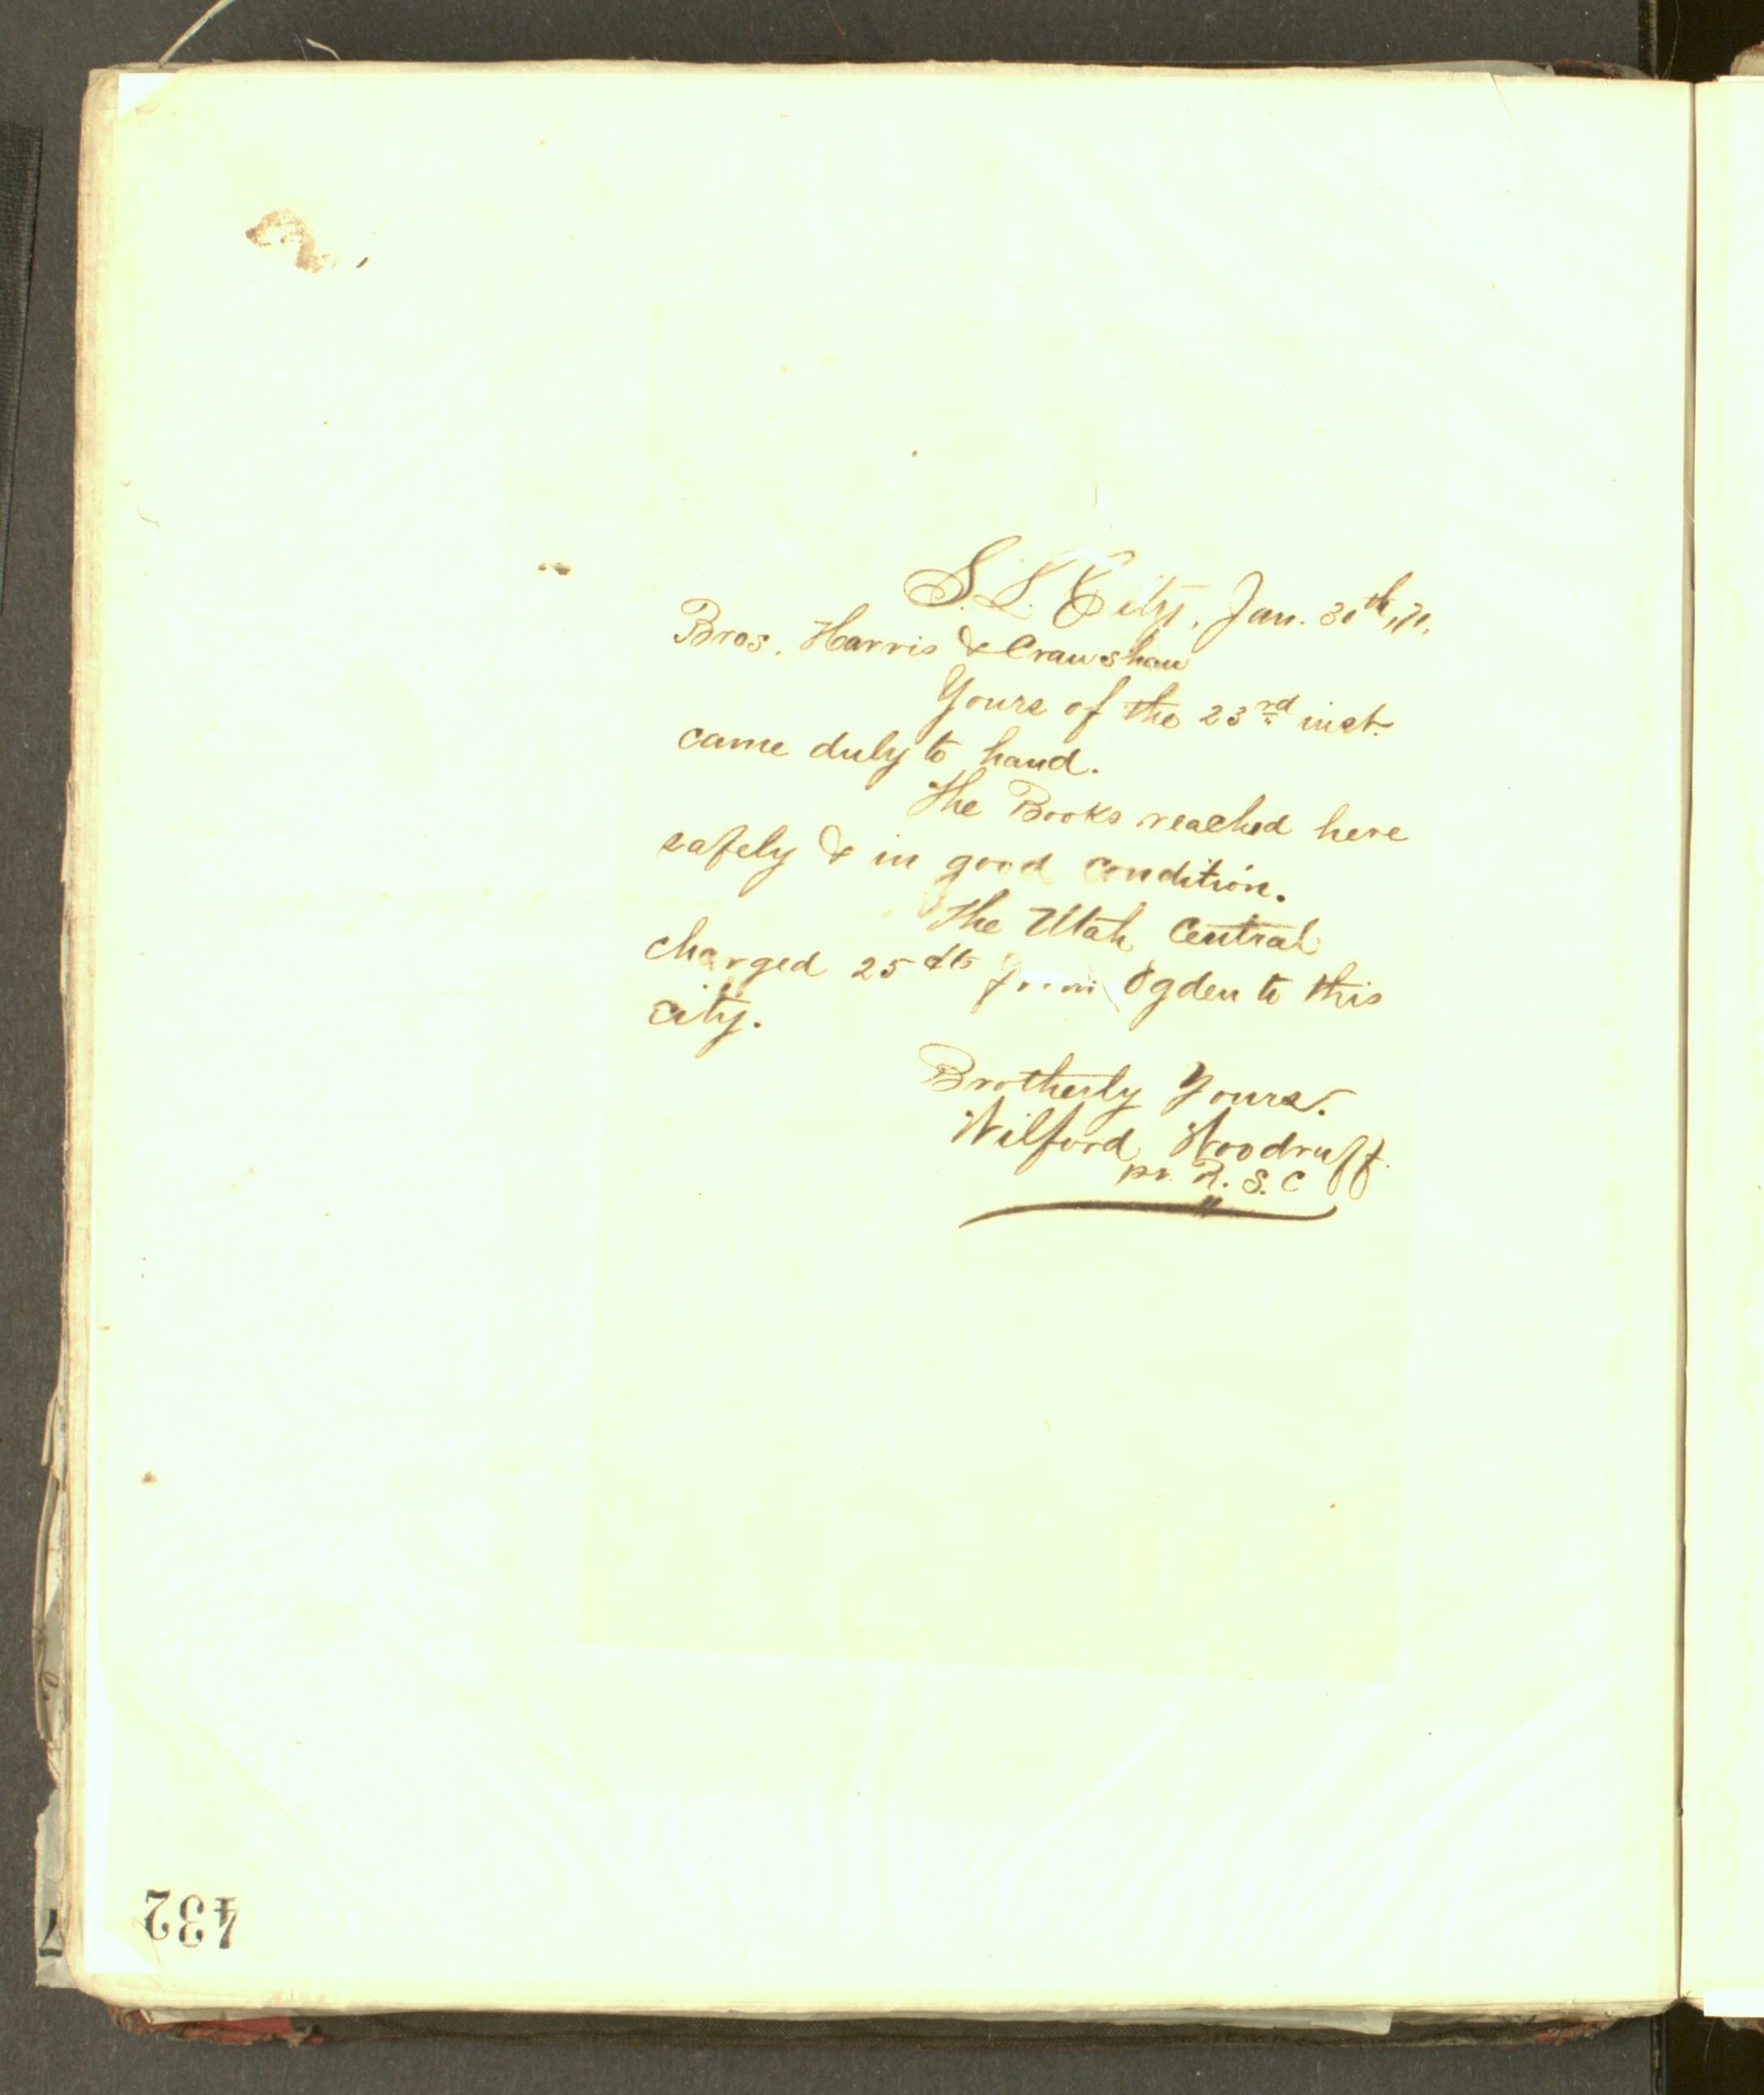 S. L. City, Jan. 30th, 71.
Bros. Harris & Crawshaw
Yours of the 23rd inst.
came duly to hand.
The Books reached here
safely & in good condition.
The Utah Central
charged 25 cts from Ogden to this
city.
Brotherly Yours.
Wilford Woodruff.
pr. R. S. C
432
7